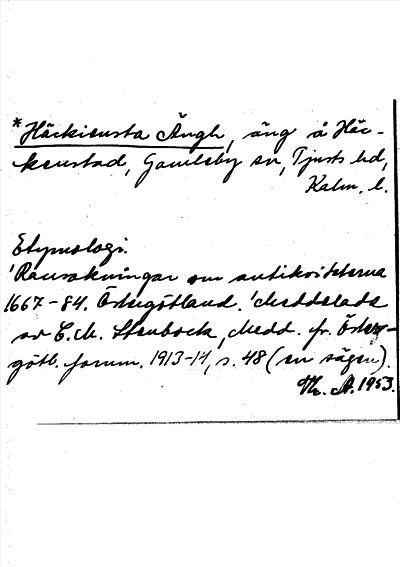 *Häckiensta Ängh, äng å Häc-
kenstad, Gamleby sn, Tjusts hd,
Kalm. l.
Etymologi.
'Ransakningar om antikviteterna
1667-84. Östergötland.' Meddelade
av E.M. Stenbock, Medd. fr. Österg-
götl. fornm. 1913-14, s. 48 (en sägen).
Th. A. 1953.